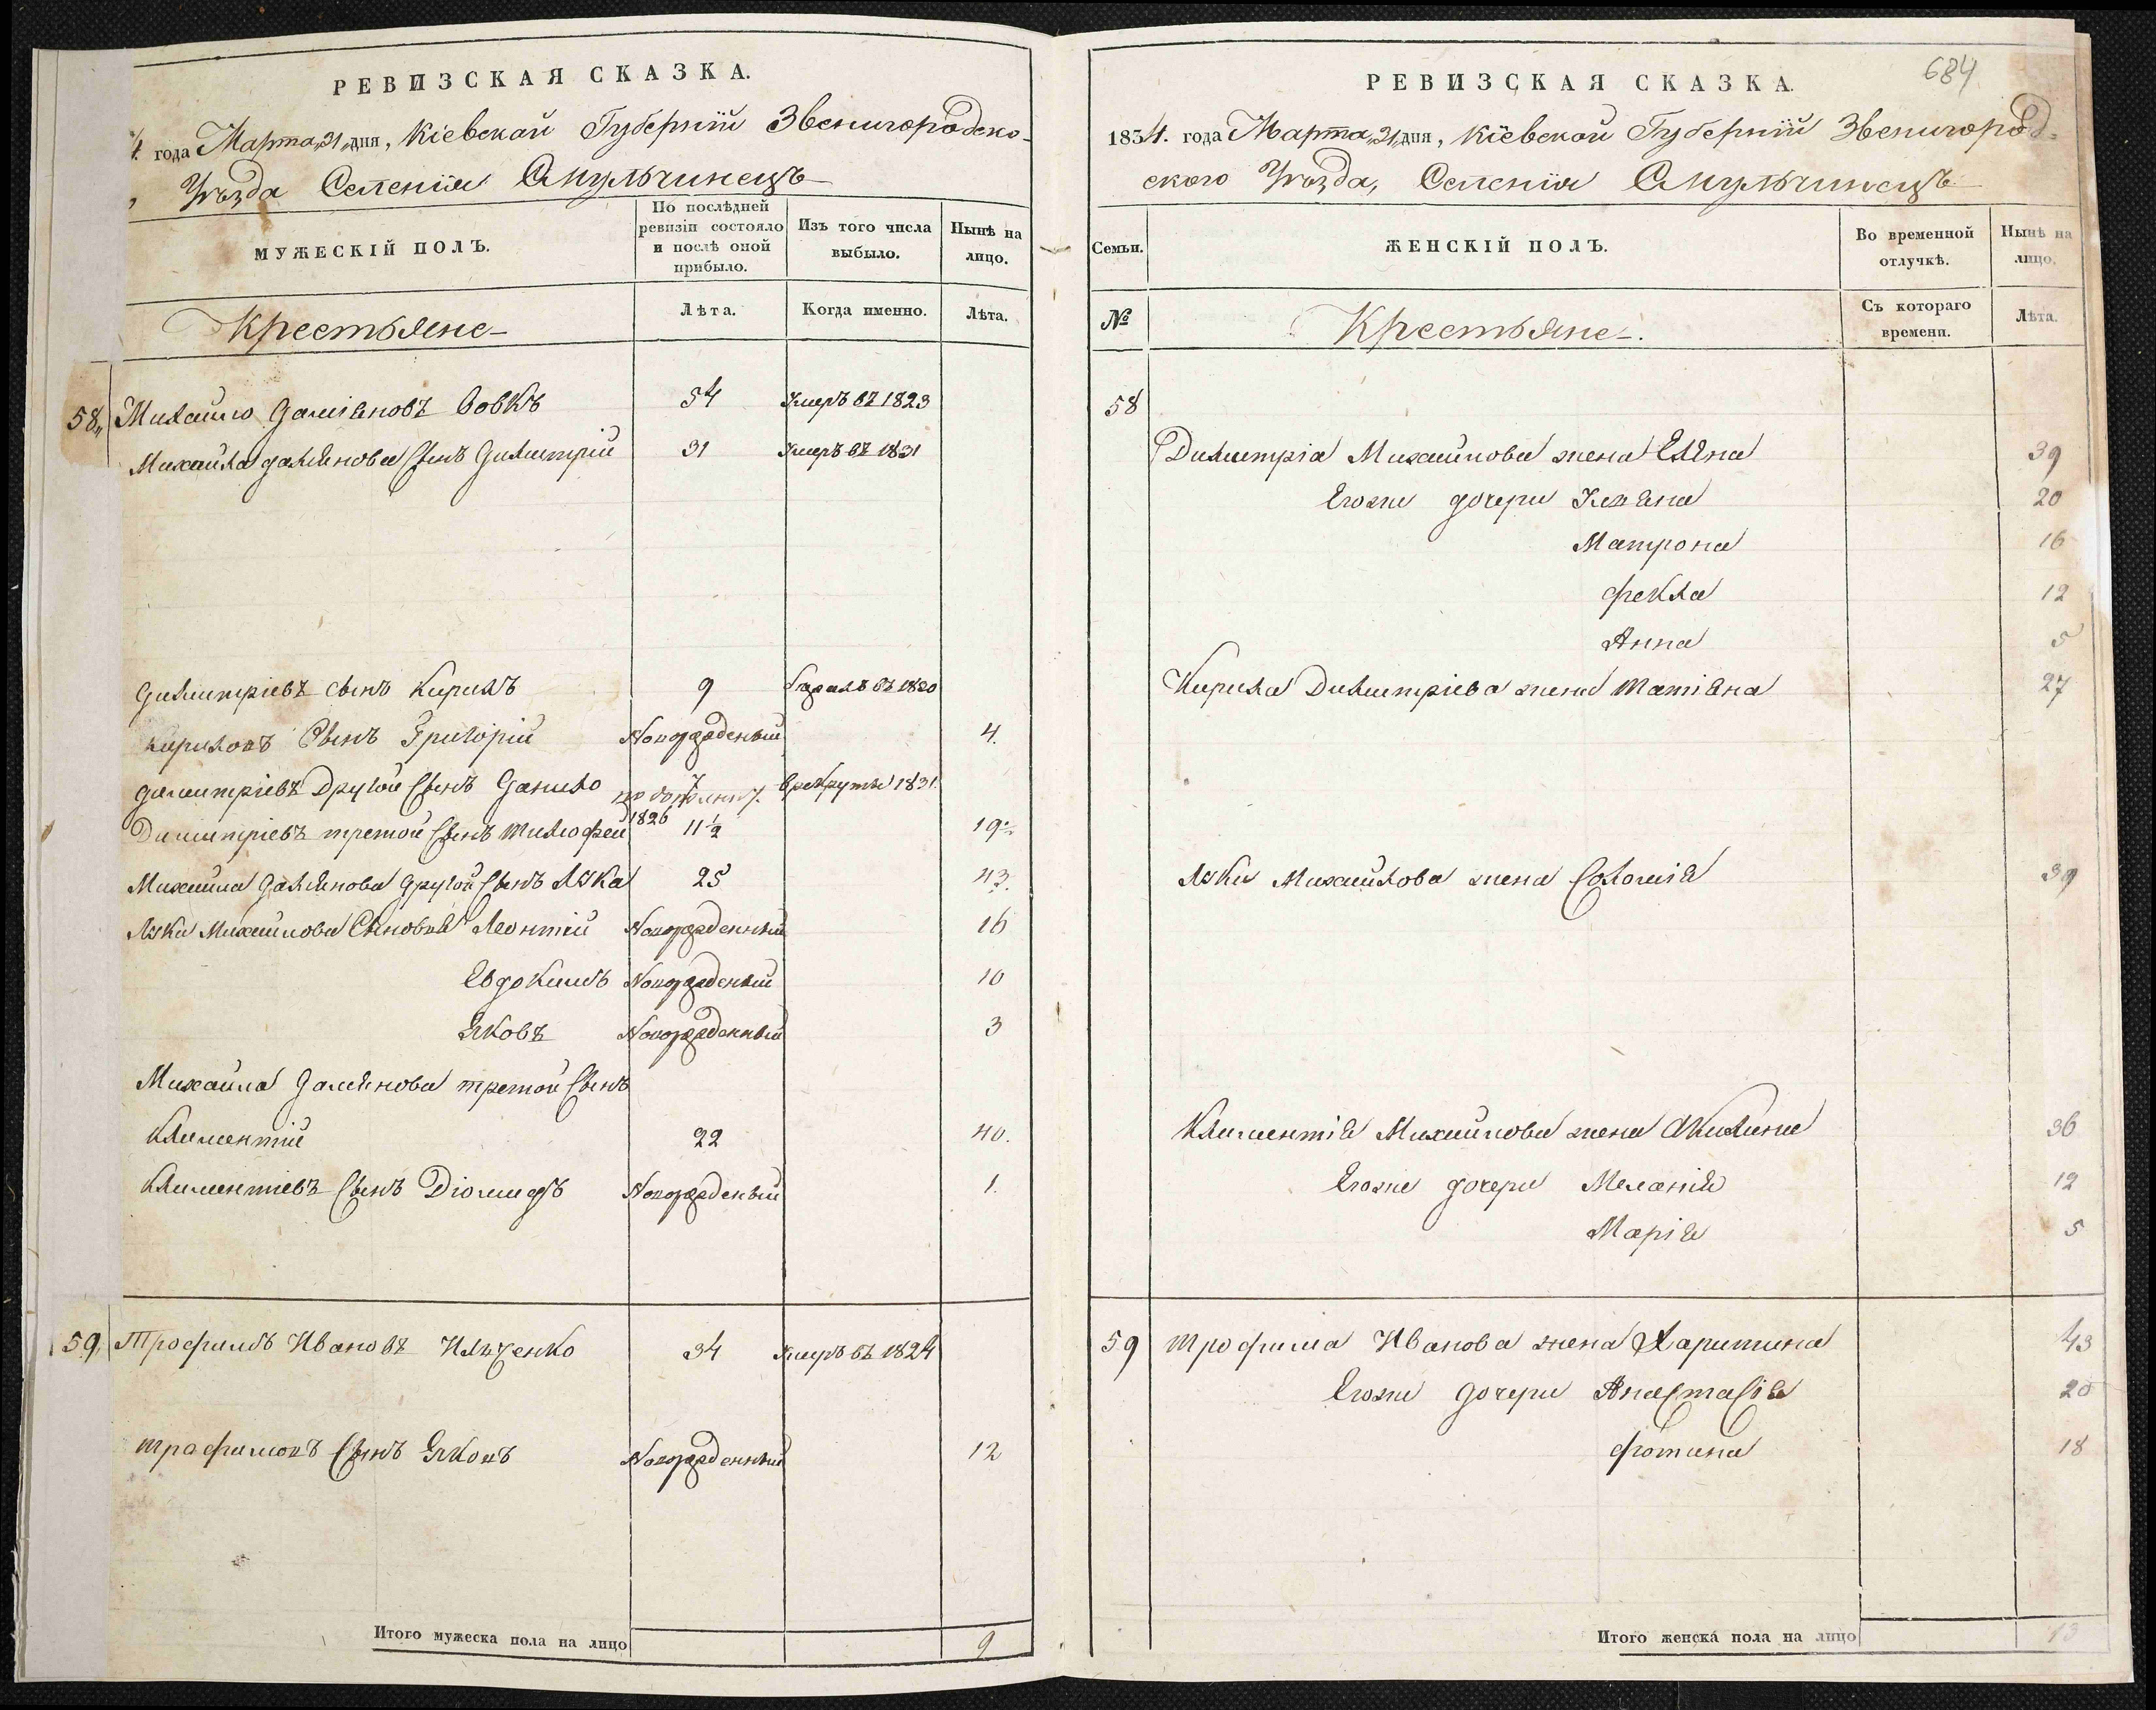 РЕВИЗСКАЯ СКАЗКА.
4. года Марта 21 дня, Кіевской Губерніи Звенигородско-
Уѣзда Селенія Смульчинецъ
МУЖЕСКІЙ ПОЛЪ.
По послѣдней ревизіи состояло и послѣ оной прибыло.
Изъ того числа выбыло.
Нынѣ на лицо.
Крестьяне
Лѣта.
Когда именно.
Лѣта.
58 Михайло Даміановъ Вовкъ 54 Умеръ въ 1823
Михайла Даміянова Сынъ Димитрій 31 Умеръ въ 1831
Димитріевъ сынъ Кирилъ 9 въ 1820
Кириловъ Сынъ Григорій Новорожденый 4.
Димитріевъ Другой Сынъ Данило 7 в рекруты 1831
1826
Димитріевъ третой Сынъ Тимофей 11 1/2 19
Михаила Даміянова другой Сынъ Лука 25 43.
Луки Михайлова Сыновья Леонтій Новорожденный 16
Евдокимъ Новорожденый 10
Яковъ Новорожденный 3
Михаила Даміянова третой Сынъ
Климентій 22 40.
Климентіевъ Сынъ Діомидъ Новорожденый 1.
59 Трофимъ Ивановъ Ильченко 34 Умеръ въ 1824
Трофимовъ Сынъ Яковъ Новорожденный 12
Итого мужеска пола на лицо 9
684
РЕВИЗСКАЯ СКАЗКА.
1834. года Марта 21 дня, Кіевской Губерніи Звенигород-
ского Уѣзда, Селенія Смульчинецъ
Семьи.
ЖЕНСКІЙ ПОЛЪ.
Во временной отлучкѣ.
Нынѣ на лицо.
№
Крестьяне.
Съ котораго времени.
Лѣта.
58
Димитріа Михайлова жена Елена 39
Егоже дочери Ульяна 20
Матрона 16
Фекла 12
Анна 5
Кирила Димитріева жена Татіяна 27
Луки Михайлова жена Соломія 39
Климентія Михайлова жена Акилина 36
Егоже дочери Меланія 12
Марія 5
59 Трофима Иванова жена Харитина 43
Егоже дочери Анастасія 20
Фотина 18
Итого женска пола на лицо 13